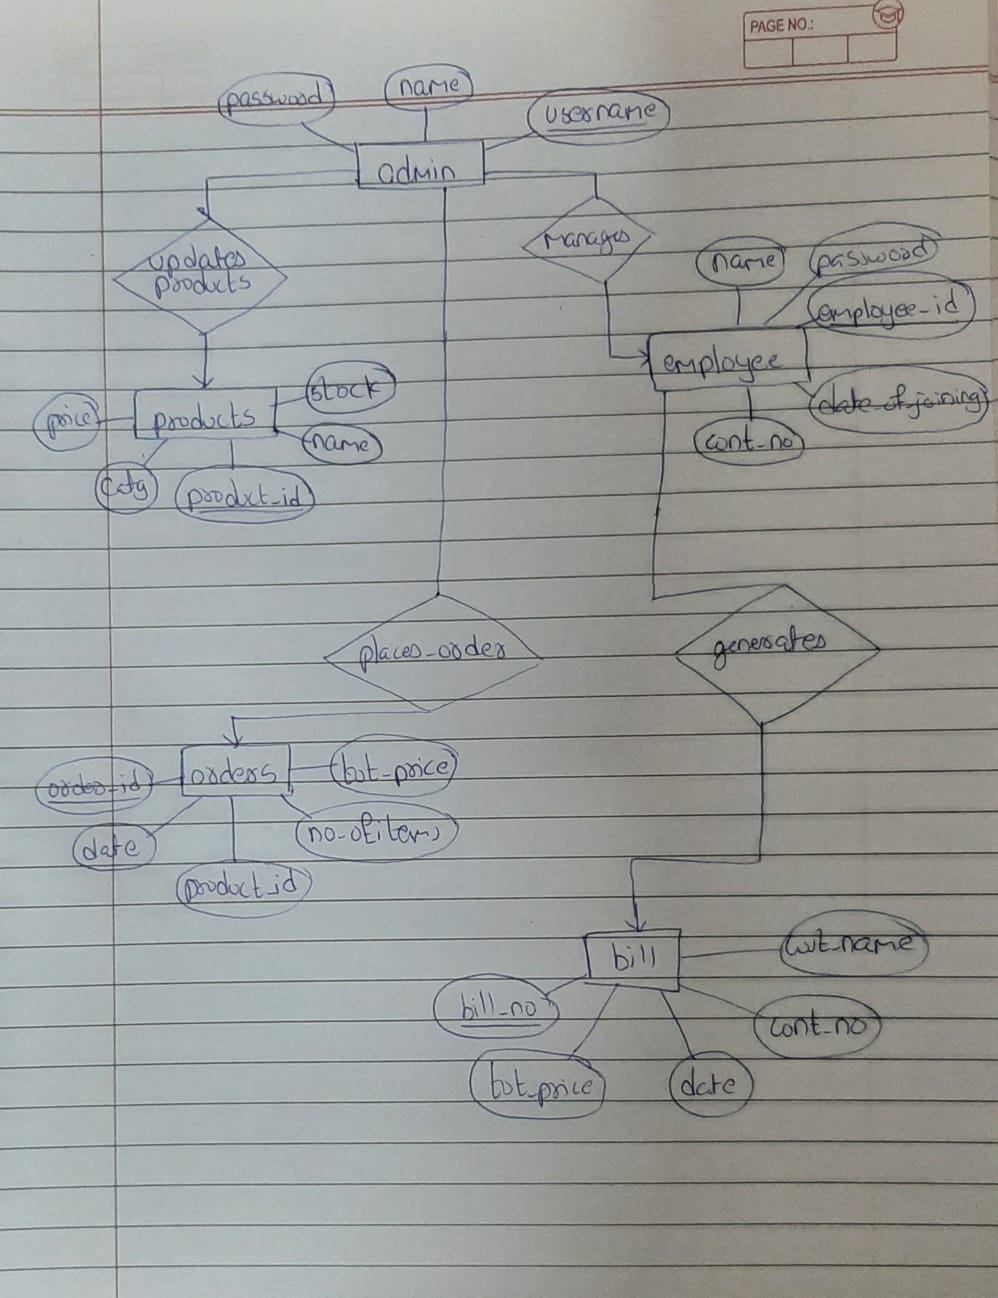 PAGE NO.:
password
name
username
admin
updates
products
Manages
name
password
employee_id
employee
date_of_joining
cont_no
stock
price
products
name
Catg
product_id
places_order
generates
orders
tot_price
order_id
no_of items
date
product_id
bill
cut_name
bill_no
cont_no
tot_price
date